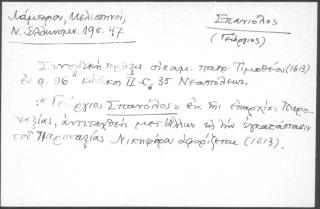 Λάμπρου, Μελισσηνοί,
Ν. Ἑλληνομν. 19, σ. 47
Σπανιόλος
(Γεώργιος)
Συνοδικὴ πρᾶξις οἰκουμ. πατρ. Τιμοθέου (1613)
ἐν φ. 96 κώδικος II-C 35 Νεαπόλεως.
:" Γεώργιος Σπανιόλος " ἐκ τῆς ἐπαρχίας Παρο-
ναξίας, ἀντιταχθεὶς μετ' ἄλλων εἰς τὴν ἐγκατάστασιν
τοῦ Παροναξίας Νικηφόρου ἀφορίζεται (1613).